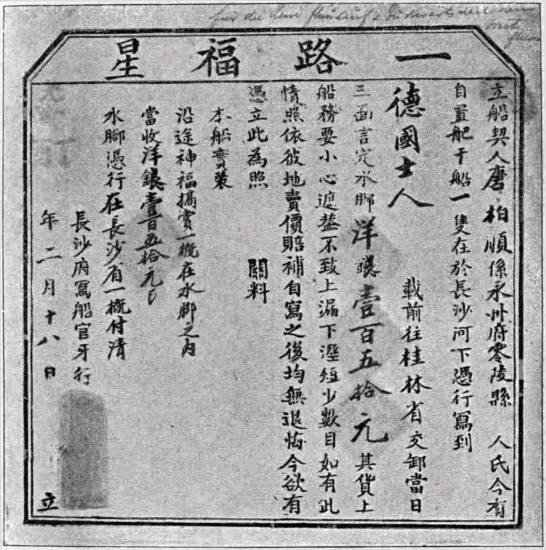 一路福星
立船契人唐柏順係永州府零陵縣 人氏今有
自置舥干船一隻在於長沙河下憑行寫到
德國士人 載前往桂林省交卸當日
三面言定水脚洋銀壹百五拾元其貨上
船務要小心遮盖不致上漏下溼短少數目如有此
情照依彼地賣價賠補自寫之後均無退悔今欲有
憑立此為照 關料
本船裝
沿途神福犒賞一概在水脚之內
當收洋銀壹百五拾元
水腳憑行在長沙省一概付清
長沙府寫船官牙行
年二月十八日 立